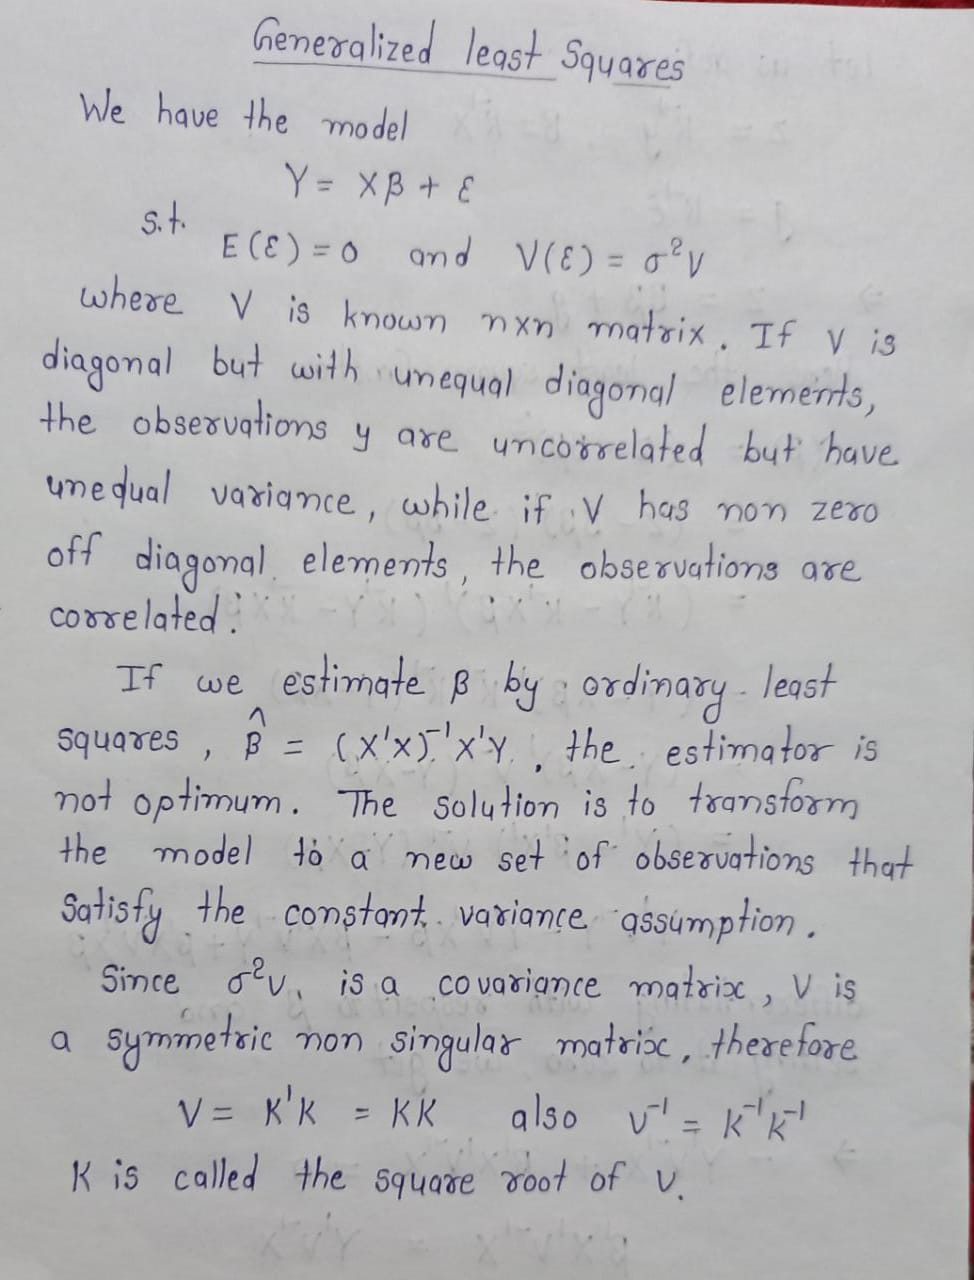 Generalized least Squares
We have the model
Y = Xβ + ε
s.t.
E(ε) = 0 and V(ε) = σ²V
where V is known n×n matrix. If V is
diagonal but with unequal diagonal elements,
the observations y are uncorrelated but have
unequal variance, while if V has non zero
off diagonal elements, the observations are
correlated.
If we estimate β by ordinary least
squares, β̂ = (X'X)⁻¹X'Y, the estimator is
not optimum. The solution is to transform
the model to a new set of observations that
satisfy the constant variance assumption.
Since σ²V is a covariance matrix, V is
a symmetric non singular matrix, therefore
V = K'K = KK also V⁻¹ = K⁻¹K⁻¹
K is called the square root of V.